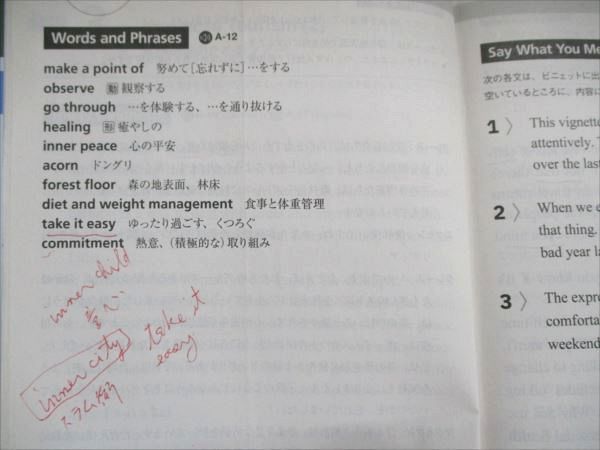 Words and Phrases A-12
make a point of 努めて[忘れずに]…をする
observe 動 観察する
go through …を体験する、…を通り抜ける
healing 形 癒やしの
inner peace 心の平安
acorn ドングリ
forest floor 森の地表面、林床
diet and weight management 食事と体重管理
take it easy ゆったり過ごす、くつろぐ
commitment 熱意、(積極的な)取り組み
inner child
童心
inner city
スラム街
take it
easy
Say What You Me
次の各文は、ビニェットに出
空いているところに、内容に
1〉 This vignette
attentively. T
over the last
2〉 When we e
that thing.
bad year la
3〉 The expre
comforta
weekend